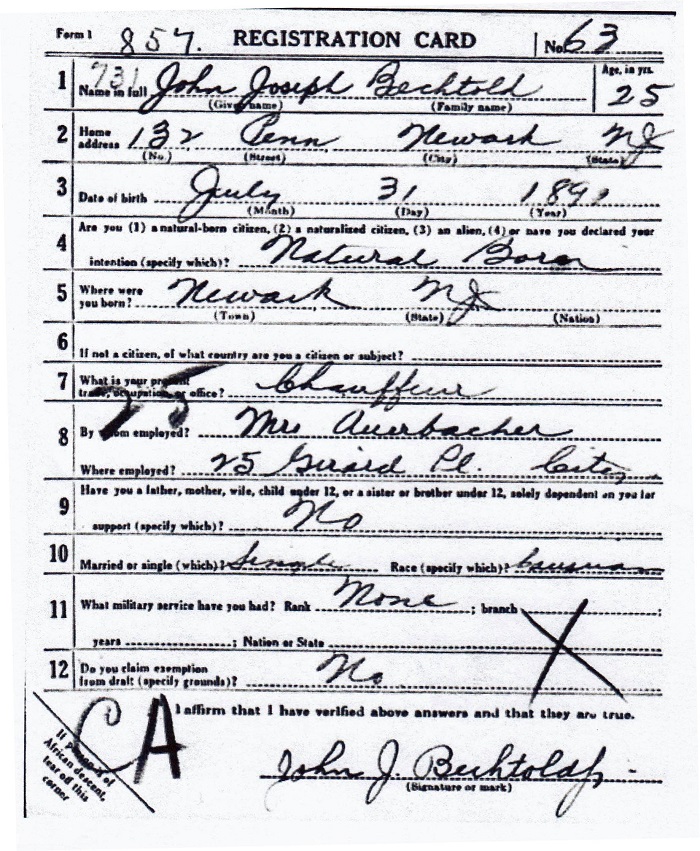 Form 1 857. REGISTRATION CARD No. 63
731
1 Name in full John Joseph Bechtold Age, in yrs. 25
(Given name) (Family name)
2 Home address 132 Penn Newark NJ
(No.) (Street) (City) (State)
3 Date of birth July 31 1891
(Month) (Day) (Year)
4 Are you (1) a natural-born citizen, (2) a naturalized citizen, (3) an alien, (4) or have you declared your
intention (specify which)? Natural Born
5 Where were you born? Newark NJ
(Town) (State) (Nation)
6 If not a citizen, of what country are you a citizen or subject?
7 What is your present
trade, occupation, or office? Chauffeur
25
8 By whom employed? Mrs Auerbacher
Where employed? 25 Girard Pl. City
9 Have you a father, mother, wife, child under 12, or a sister or brother under 12, solely dependent on you for
support (specify which)? No
10 Married or single (which)? Single Race (specify which)? Caucasian
11 What military service have you had? Rank None ; branch ;
years ; Nation or State
12 Do you claim exemption
from draft (specify grounds)? No
I affirm that I have verified above answers and that they are true.
CA
If person is of
African descent,
tear off this
corner
John J. Bechtold
(Signature or mark)